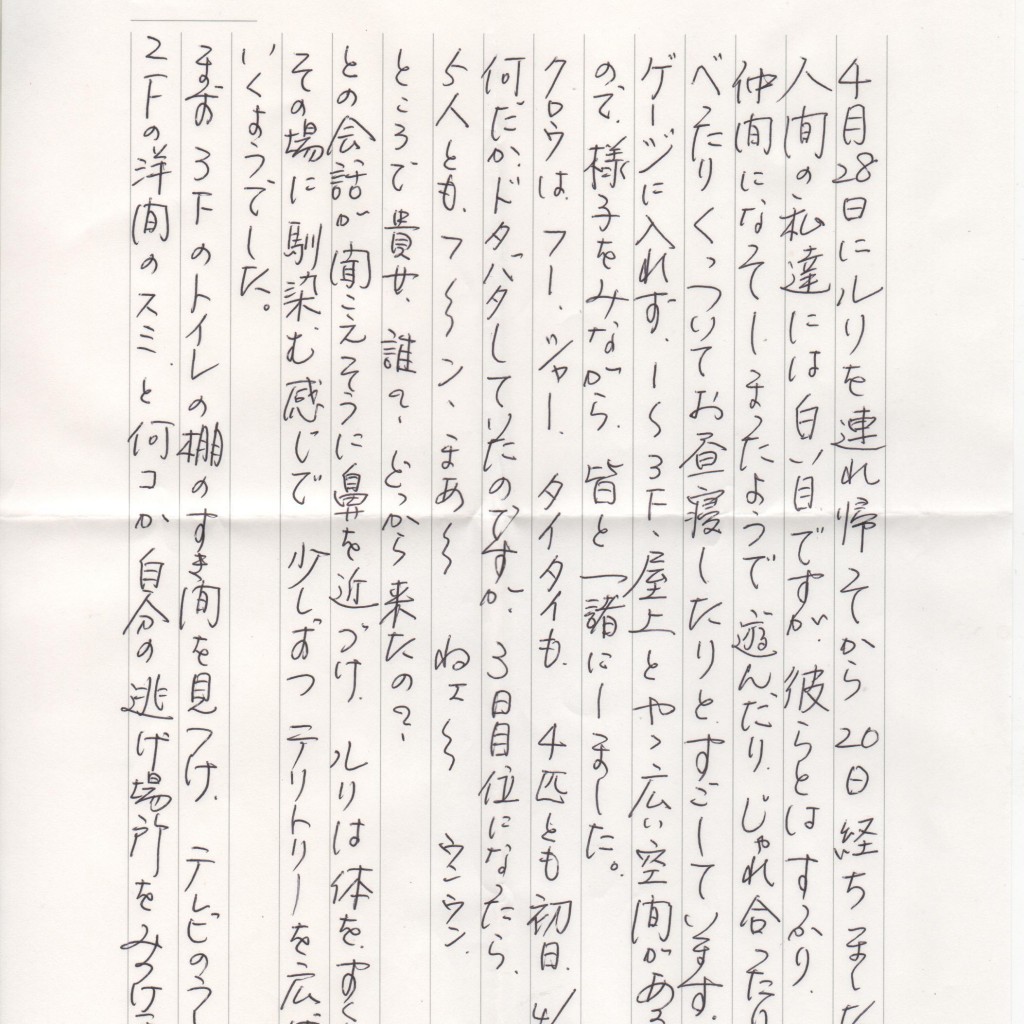 4月28日にルリを連れ帰そから20日経ちました
人間の私達には白い目ですが、彼らとはすふり
仲間になそしまったようで遊んだり、じゃれ合ったり
べったりくっついてお昼寝したりとすごしています。
ゲージに入れず、1〜3F、屋上とやゝ広い空間がある
ので、様子をみながら、皆と一諸にしました。
クロウは、フー、シャー、タイタイも、4匹とも初日、4/
何だか、ドタバタしていたのですが、3日目位になったら、
5人とも、フ〜〜ン、まあ〜〜 ねェ〜〜 ウンウン、
ところで貴女、誰?、どっから来たの?、
との会話が聞こえそうに鼻を近づけ、ルリは体を、すく
その場に馴染む感じで 少しずつ テリトリーを広げ
いくようでした。
まず 3Fのトイレの棚のすき間を見つけ、テレビのうし
2Fの洋間のスミ、と何コか自分の逃げ場所をみつけ